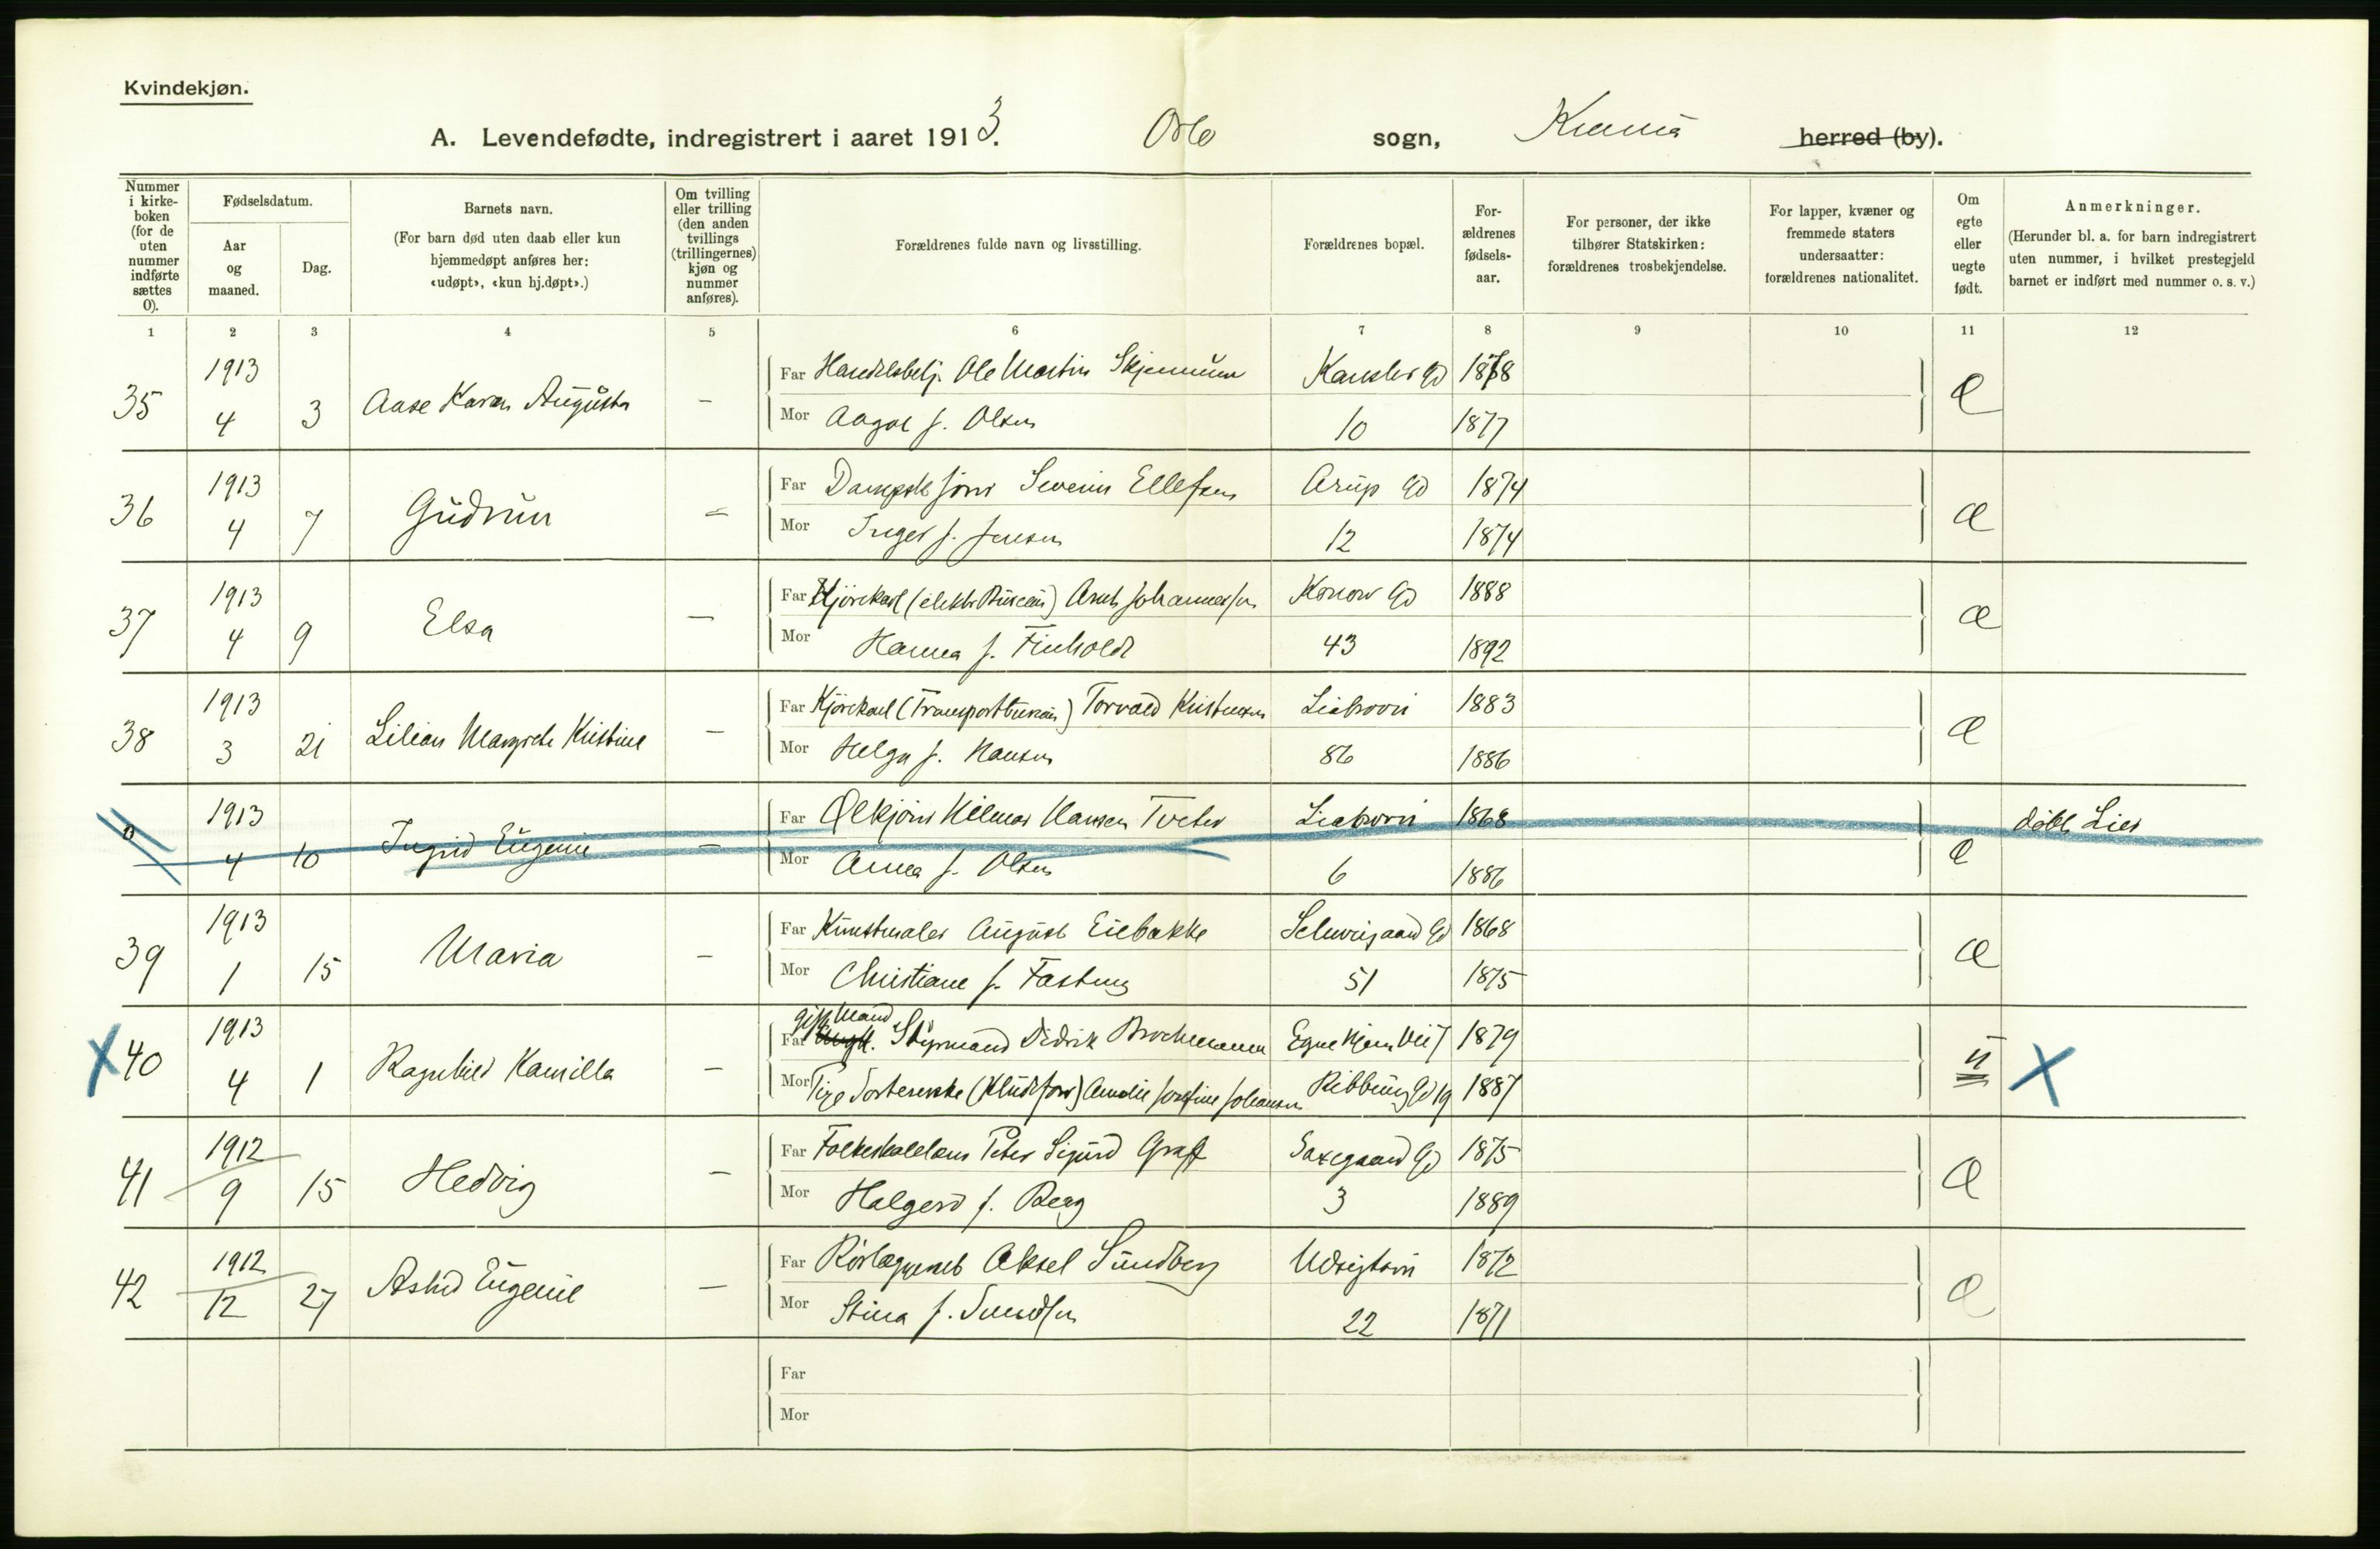 Kvindekjøn.
A. Levendefødte, indregistrert i aaret 1913. Oslo sogn, Kr.ania herred (by).
Nummer i kirke-boken (for de uten nummer indførte sættes 0).
Fødselsdatum.
Aar og maaned.
Dag.
Barnets navn.
(For barn død uten daab eller kun hjemmedøpt anføres her: «udøpt», «kun hj.døpt».)
Om tvilling eller trilling (den anden tvillings (trillingernes) kjøn og nummer anføres).
Forældrenes fulde navn og livsstilling.
Forældrenes bopæl.
For-ældrenes fødsels-aar.
For personer, der ikke tilhører Statskirken: forældrenes trosbekjendelse.
For lapper, kvæner og fremmede staters undersaatter: forældrenes nationalitet.
Om egte eller uegte født.
Anmerkninger.
(Herunder bl. a. for barn indregistrert uten nummer, i hvilket prestegjeld barnet er indført med nummer o. s. v.)
1 2 3 4 5 6 7 8 9 10 11 12
35 1913 4 3 Aase Karen Augusta –
Far Handelsbetj. Ole Martin Skjennum Kansler Gd 1878
Mor Aagot f. Olsen 10 1877
Æ
36 1913 4 7 Gudrun –
Far Severin Ellefsen Arup Gd 1874
Mor Inger f. Jensen 12 1874
Æ
37 1913 4 9 Elsa –
Far Kjørekarl (elektr. Bureau) Arnt Johannessen Konow Gd 1888
Mor Hanna f. Finholdt 43 1892
Æ
38 1913 3 21 Lilian Margrete Kristine –
Far Kjørekarl (Transportbureau) Torvald Kristensen Liabrovei 1883
Mor Helga f. Hansen 86 1886
Æ
0 1913 4 10 Ingrid Eugenie –
Far Ølkjører Hilmar Hansen Tveter Liabrovei 1868
Mor Anna f. Olsen 6 1886
Æ døbt Lier
39 1913 1 15 Maria –
Far Kunstmaler August Eiebakke Schweigaard Gd 1868
Mor Christiane f. Fasting 51 1875
Æ
X 40 1913 4 1 Ragnhild Kamilla –
gift Mand
Far Styrmand Didrik Brochmann Egne Hjem Vei 7 1879
Mor Pige Sorterenske (Kludeforr) Amalie Josefine Johansen Ribbung Gd 19 1887
U X
41 1912 9 15 Hedvig –
Far Peter Sigurd Graff Saxegaard Gd 1875
Mor Halgerd f. Berg 3 1889
Æ
42 1912 12 27 Astrid Eugenie –
Far Rørlæggermest Aksel Sundberg Udsigtsvei 1872
Mor Stina f. 22 1871
Æ
Far
Mor